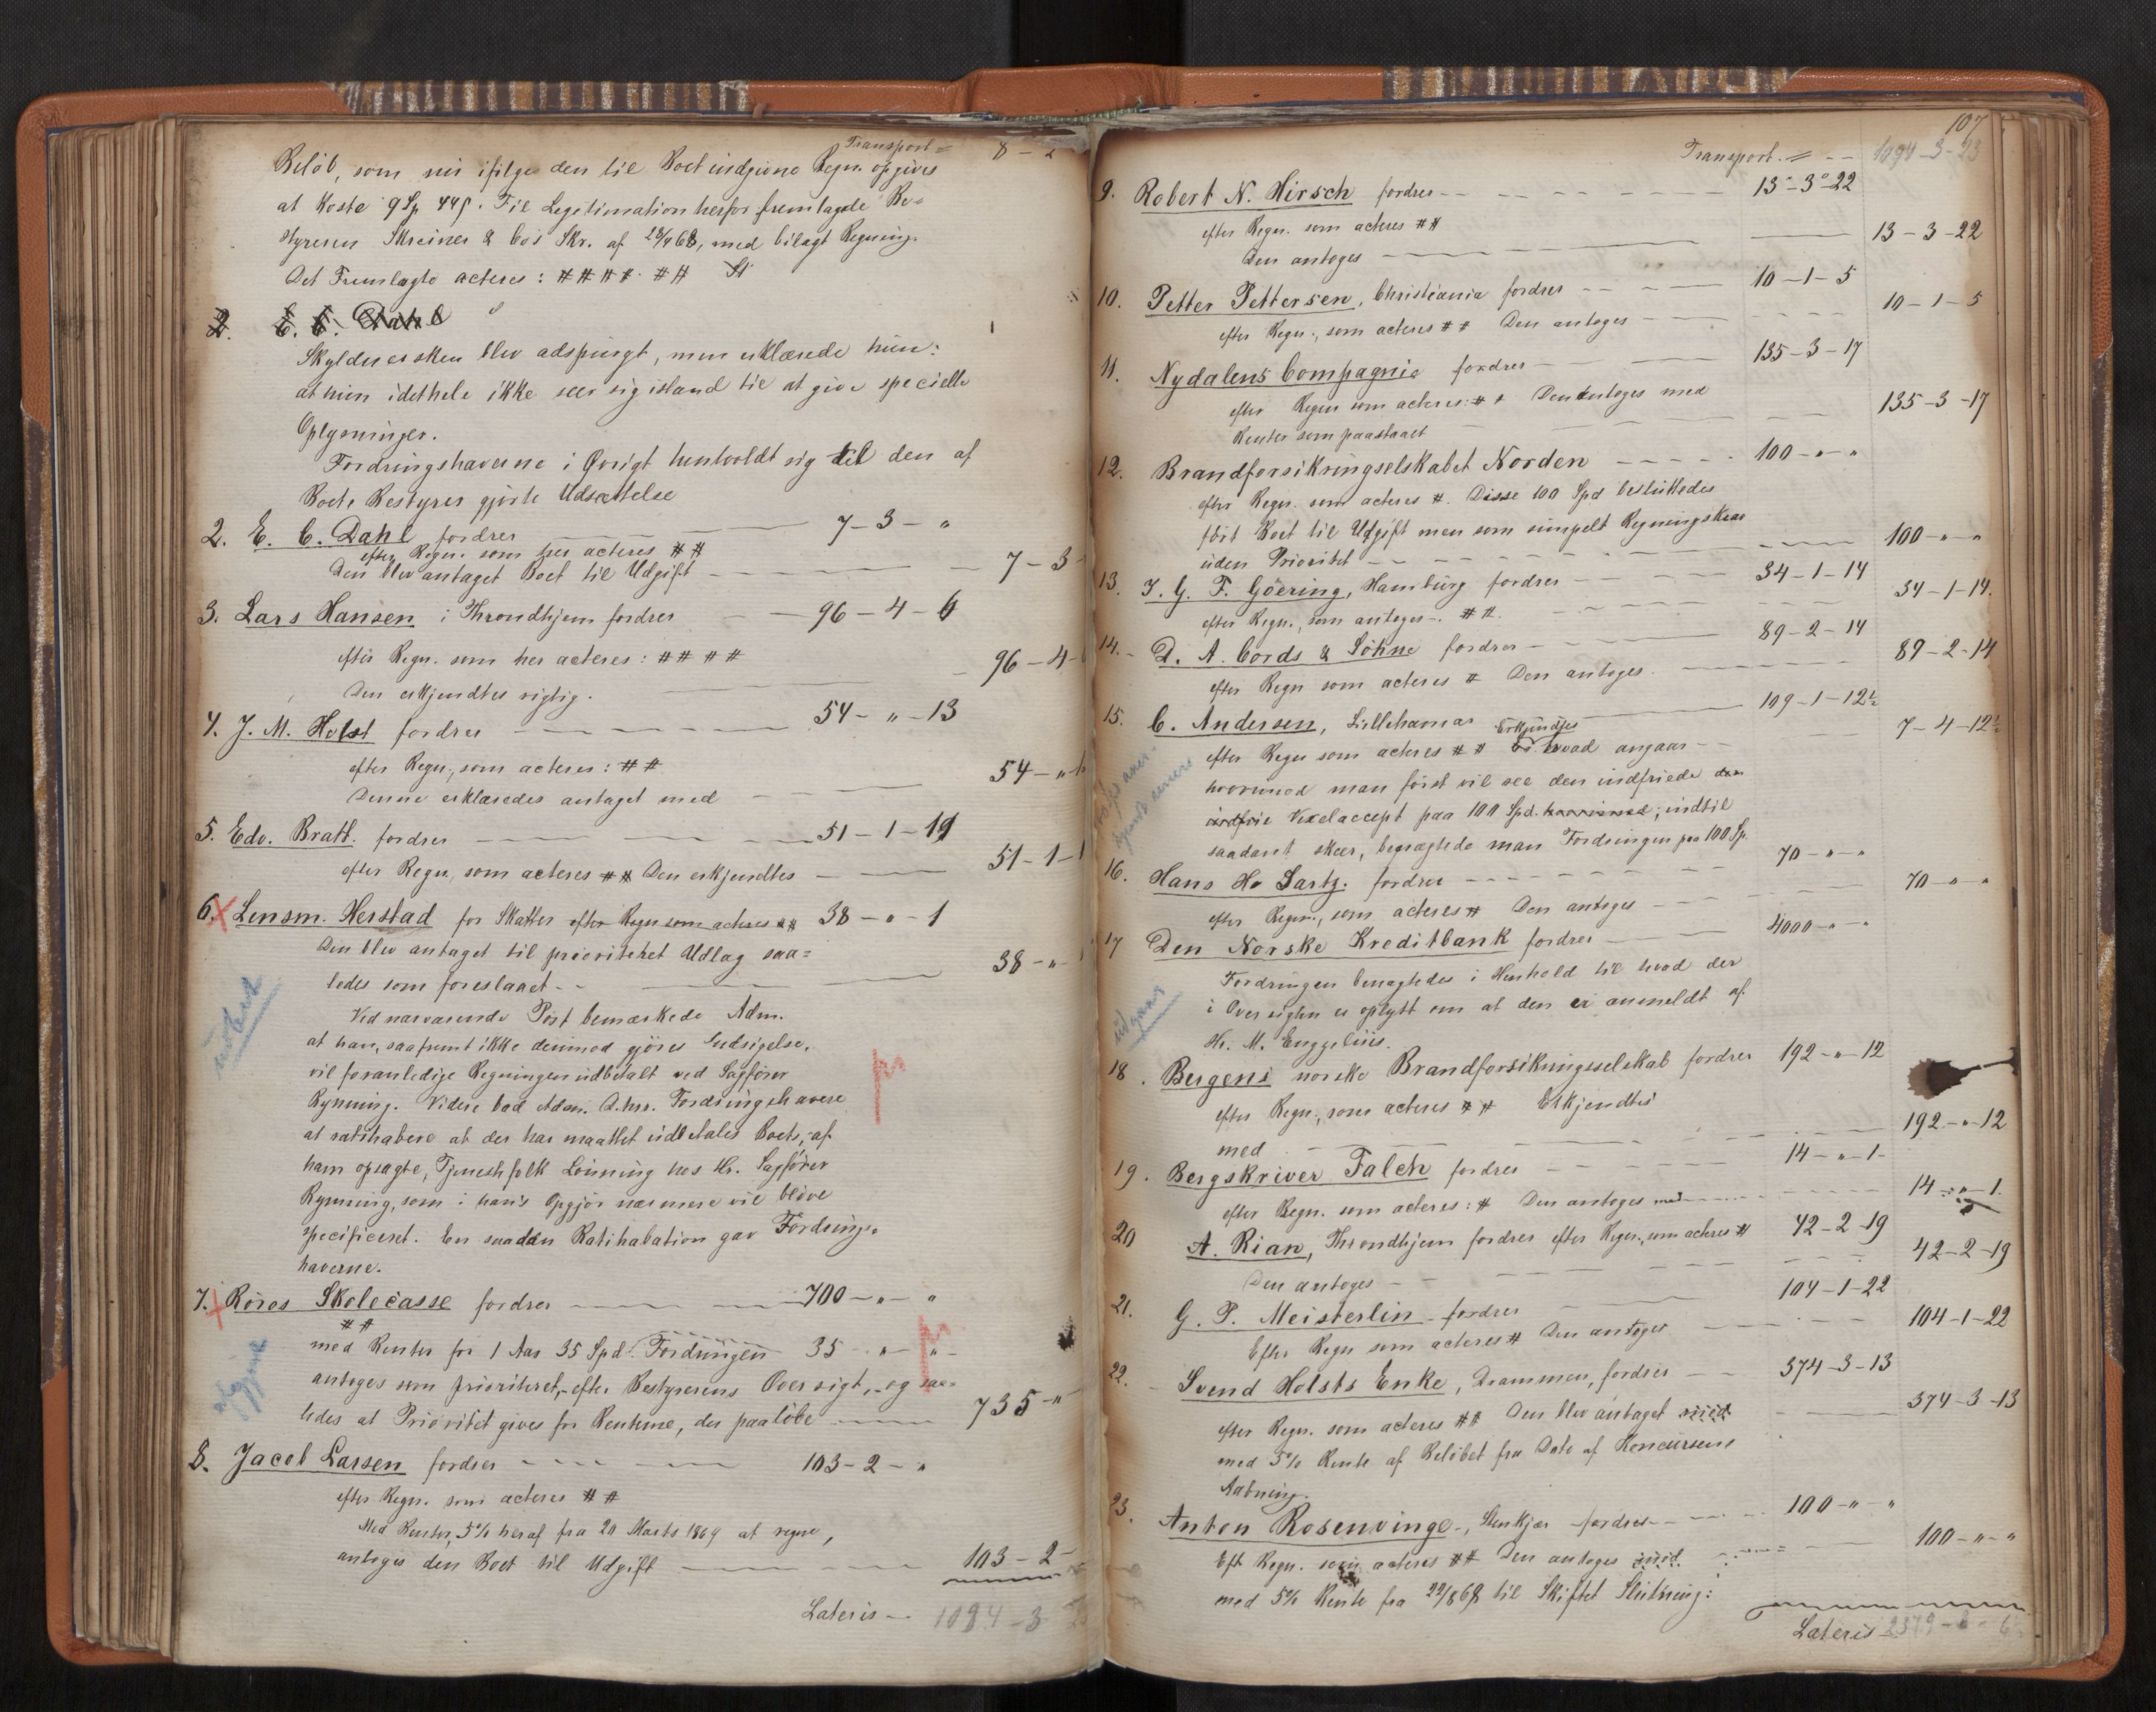 Transport = 8 - 2
Beløb, som nu ifølge den til Boet indgivne Regn. opgives
at koste 9 Sp 44 β. Til Legitimation herfor fremlagde Be=
styreren Skreiner & Co's Skr. af 28/4 68, med bilagt Regning.
Det Fremlagte acteres: # # # # . # #
2. E. C. Dahl
Skyldnersken blev adspurgt, men erklærede hun:
at hun idethele ikke seer sig istand til at give specielle
Oplysninger.
Fordringshaverne i Øvrigt henholdt sig til den af
Boets Bestyrer gjorte Udsættelse
2. E. C. Dahl fordrer 7 - 3 - "
efter Regn. som her acteres # #
Den blev antaget Boet til Udgift 7 - 3 -
3. Lars Hansen i Throndhjem fordrer 96 - 4 - 6
efter Regn. som her acteres: # # # # 96 - 4 -
Den erkjendtes rigtig.
4. J. M. Holst fordrer 54 - " - 13
efter Regn., som acteres: # # 54 - "
Denne erklæredes antaget med
5. Edv. Bratt. fordrer 51 - 1 - 19
efter Regn, som acteres # # Den erkjendtes 51 - 1 -
6. Lensm. Herstad for Skatter efter Regn som acteres # # 38 - " - 1
Den blev antaget til prioritetet Udlag saa= 38 - "
ledes som foreslaaet - -
Ved nærværende Post bemærkede Adm.
at han, saafremt ikke derimod gjøres Indsigelse,
vil foranledige Regningen udbetalt ved Sagfører
Rynning. Videre bad Adm. D.hrr. Fordringshavere
at ratihabere at der har maattet udbetales Boets, af
ham opsagte, Tjenestfolk Lønning hos Hr. Sagfører
Rynning, som i hans Opgjør nærmere vil blive
specificeret. En saadan Ratihabation gav Fordrings-
haverne.
7. Røros Skolecasse fordrer 700 - " - "
# #
med Renter for 1 Aar 35 Spd. Fordringen 35 - " - "
antoges som prioriteret, efter Bestyrerens Oversigt, og saa=
ledes at Prioritet gives for Renterne, der paaløbe 735 - "
8. Jacob Larsen fordrer 103 - 2 - "
efter Regn. som acteres # #
Med Renter, 5% heraf fra 20 Marts 1869 at regne,
antoges den Boet til Udgift 103 - 2 -
Lateris - 1094 - 3
107
Transport. = 1094 - 3 - 23
9. Robert N. Hirsch fordrer 13 - 3 - 22
efter Regn. som acteres # #
Den antoges 13 - 3 - 22
10. Petter Pettersen, Christiania fordrer 10 - 1 - 5
efter Regn., som acteres # # Den antoges 10 - 1 - 5
11. Nydalens Compagnie fordrer 135 - 3 - 17
efter Regn som acteres: # # Den antoges med
Renter som paastaaet 135 - 3 - 17
12. Brandforsikringselskabet Norden 100 - " - "
efter Regn. som acteres #. Disse 100 Spd besluttedes
ført Boet til Udgift men som simpelt Regningskrav
uden Prioritet 100 - " - "
13. J. G. F. Goering, Hamburg fordrer 34 - 1 - 14
efter Regn., som antoges -. # #. 34 - 1 - 14.
14. D. A. Cords & Söhne fordrer 89 - 2 - 14
efter Regn som acteres # Den antoges. 89 - 2 - 14
15. C. Andersen, Lillehamar 109 - 1 - 12½
Erkjendtes
efter Regn som acteres # # hvad angaar 7 - 4 - 12½
hvormod man først vil see den indfriede den
indfrie Vexelaccept paa 100 Spd. ; indtil
saadant skeer, benægtede man Fordringen paa 100 Sp.
16. Hans H. Lartz. fordrer 70 - " - "
efter Regn., som acteres # Den antoges 70 - " - "
17 Den Norske Kreditbank fordrer 4000 - " - "
Fordringen benægtedes i Henhold til hvad der
i Oversigten er oplyst om at den ei anmeldt af
Hr. M. Enggelius.
udgaar
18. Bergens norske Brandforsikringsselskab fordrer 192 - " - 12
efter Regn., som acteres # # Erkjendtes
med 192 - " - 12
19. Bergskriver Falch fordrer 14 - " - 1 -
efter Regn. som acteres: # Den antoges med 14 - " - 1.
20 A. Rian, Throndhjem fordrer efter Regn., som acteres # 42 - 2 - 19
Den antoges 42 - 2 - 19
21. G. P. Meisterlin fordrer 104 - 1 - 22
Efter Regn som acteres # Den antoges 104 - 1 - 22
22. Svend Holsts Enke, Drammen, fordrer 374 - 3 - 13
efter Regn. som acteres # # Den blev antaget med 374 - 3 - 13
med 5% Rente af Beløbet fra Dato af Koncursens
Aabning.
23. Anton Rosenvinge, Stenkjær fordrer 100 - " - "
Eft Regn. som acteres # # Den antoges med 100 - " - "
med 5% Rente fra 22/8 68 til Skiftet Slutning:
Lateris 2379 - 3 - 6½